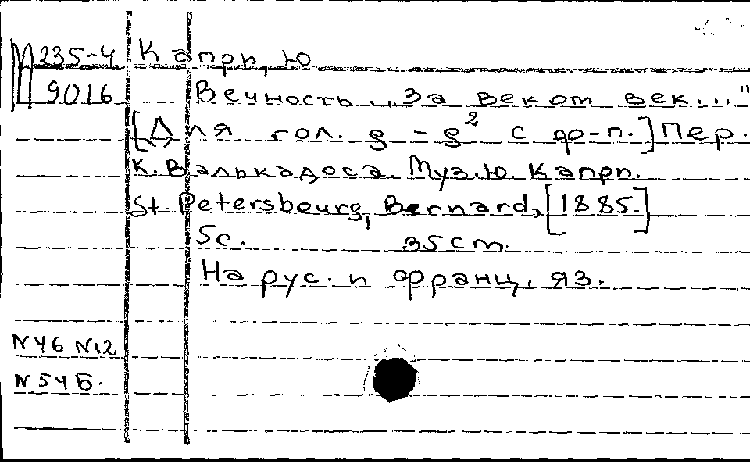 М 235-4 Капри, Ю
9016 Вечность. „За веком век..."
[Для гол. g - g² с ф-п.] Пер.
К. Валькадоса. Муз. Ю. Капри.
St Petersbourg, Bernard, [1885.]
5с. 35 cm.
На рус. и франц. яз.
N46 N12
N54Б.